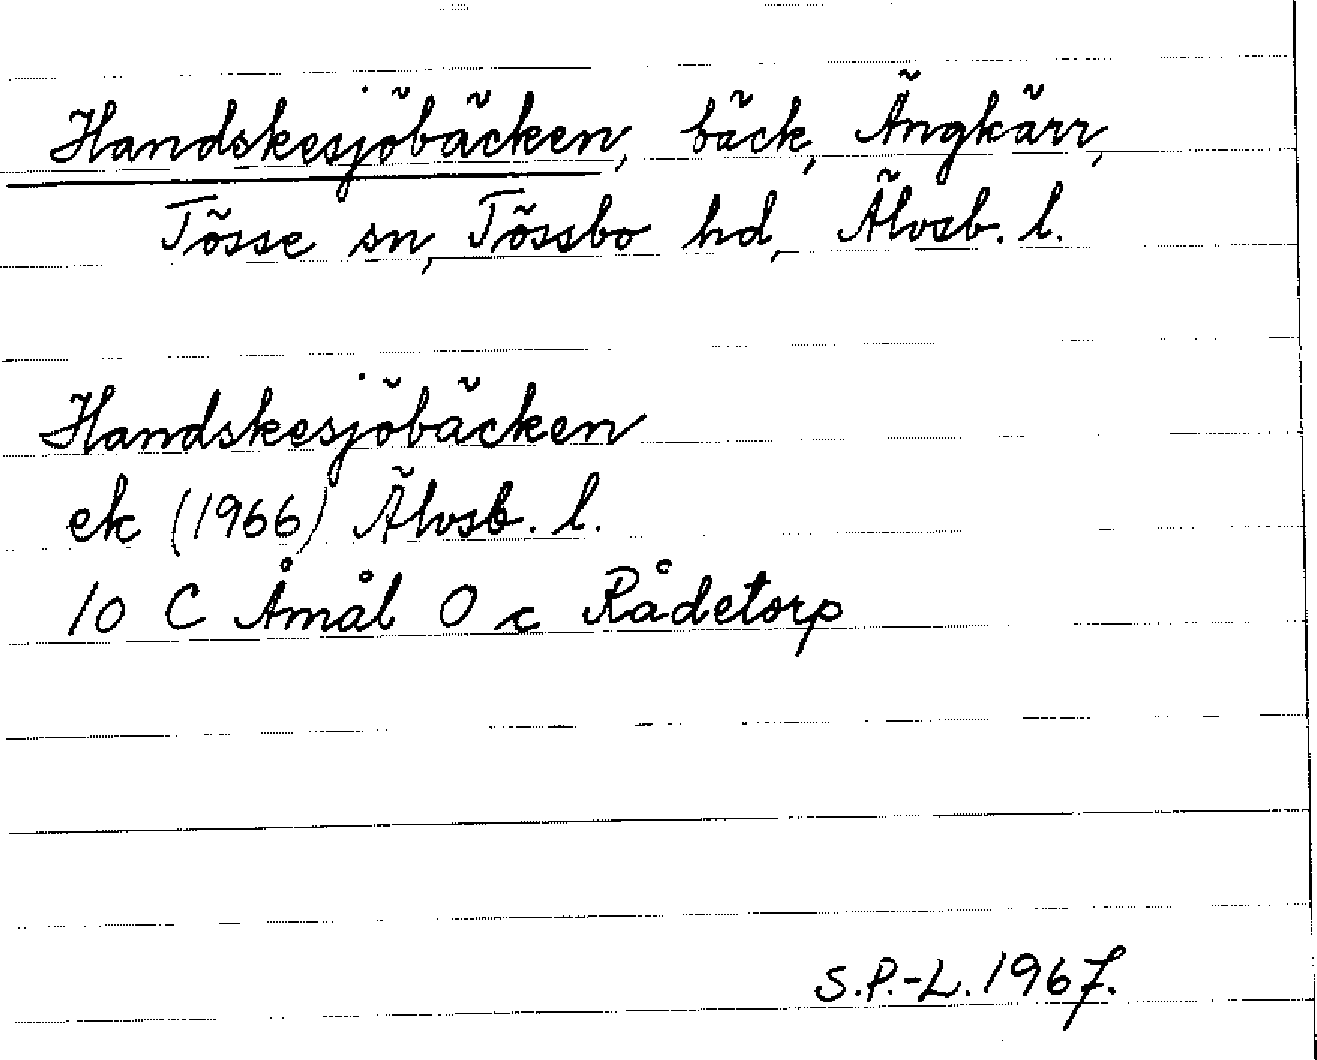 Handskesjöbäcken, bäck, Ängkärr,
Tösse sn, Tössbo hd, Älvsb. l.
Handskesjöbäcken
ek (1966) Älvsb. l.
10 C Åmål O c Rådetorp
S.P.-L. 1967.